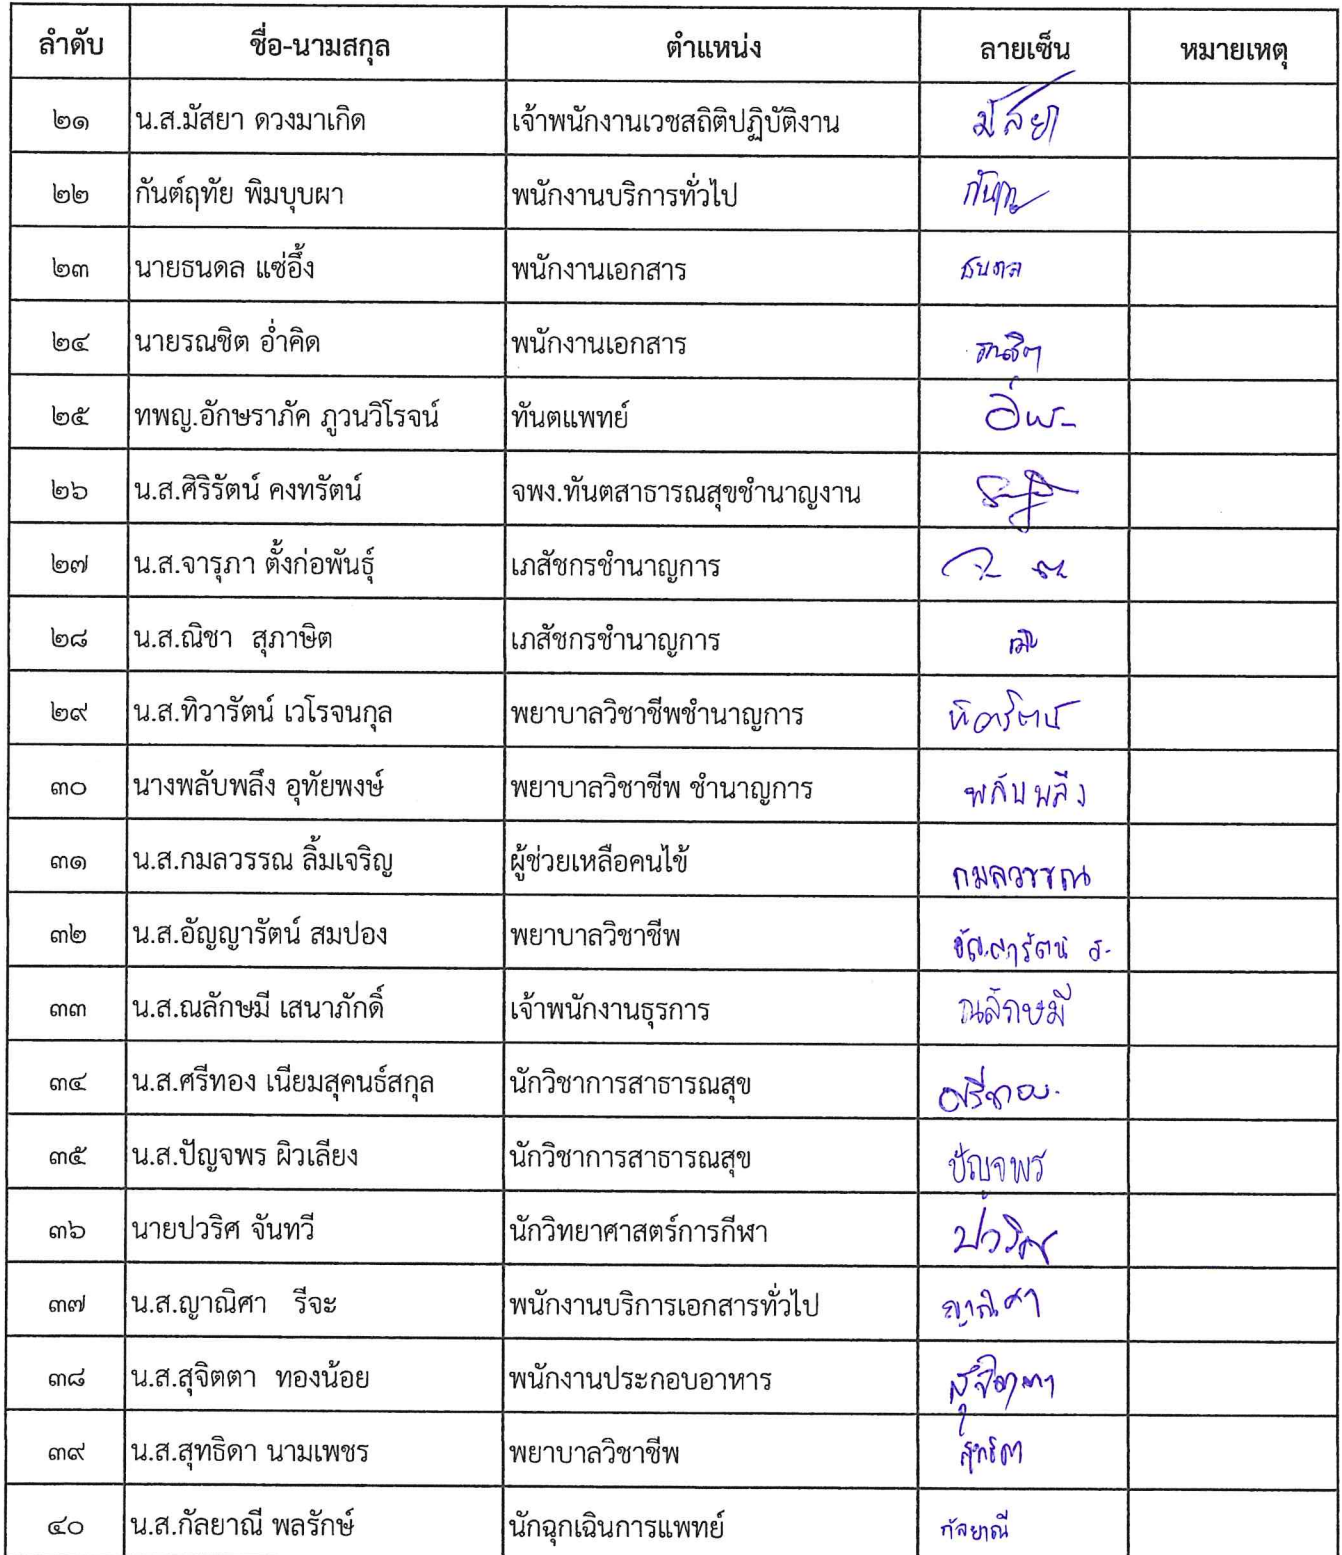 ลำดับ ชื่อ-นามสกุล ตำแหน่ง ลายเซ็น หมายเหตุ
๒๑ น.ส.มัสยา ดวงมาเกิด เจ้าพนักงานเวชสถิติปฏิบัติงาน มัสยา
๒๒ กันต์ฤทัย พิมบุบผา พนักงานบริการทั่วไป
๒๓ นายธนดล แซ่อึ้ง พนักงานเอกสาร ธนดล
๒๔ นายรณชิต อ่ำคิด พนักงานเอกสาร รณชิต
๒๕ ทพญ.อักษราภัค ภูวนวิโรจน์ ทันตแพทย์
๒๖ น.ส.ศิริรัตน์ คงทรัตน์ จพง.ทันตสาธารณสุขชำนาญงาน
๒๗ น.ส.จารุภา ตั้งก่อพันธุ์ เภสัชกรชำนาญการ
๒๘ น.ส.ณิชา สุภาษิต เภสัชกรชำนาญการ
๒๙ น.ส.ทิวารัตน์ เวโรจนกุล พยาบาลวิชาชีพชำนาญการ ทิวารัตน์
๓๐ นางพลับพลึง อุทัยพงษ์ พยาบาลวิชาชีพ ชำนาญการ พลับพลึง
๓๑ น.ส.กมลวรรณ ลิ้มเจริญ ผู้ช่วยเหลือคนไข้ กมลวรรณ
๓๒ น.ส.อัญญารัตน์ สมปอง พยาบาลวิชาชีพ อัญญารัตน์ ส.
๓๓ น.ส.ณลักษมี เสนาภักดิ์ เจ้าพนักงานธุรการ ณลักษมี
๓๔ น.ส.ศรีทอง เนียมสุคนธ์สกุล นักวิชาการสาธารณสุข ศรีทอง
๓๕ น.ส.ปัญจพร ผิวเลียง นักวิชาการสาธารณสุข ปัญจพร
๓๖ นายปวริศ จันทวี นักวิทยาศาสตร์การกีฬา ปวริศ
๓๗ น.ส.ญาณิศา รีจะ พนักงานบริการเอกสารทั่วไป ญาณิศา
๓๘ น.ส.สุจิตตา ทองน้อย พนักงานประกอบอาหาร สุจิตตา
๓๙ น.ส.สุทธิดา นามเพชร พยาบาลวิชาชีพ สุทธิดา
๔๐ น.ส.กัลยาณี พลรักษ์ นักฉุกเฉินการแพทย์ กัลยาณี